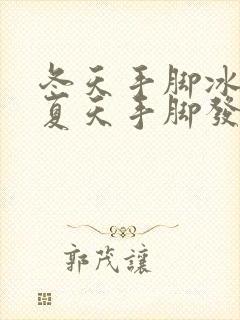 冬天手脚冰
夏天手脚發
郭茂讓